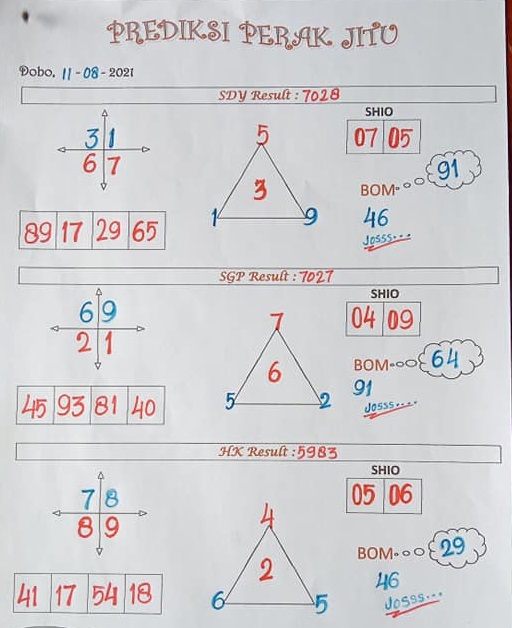 PREDIKSI PERAK JITU
Dobo, 11-08-2021
SDY Result : 7028
SHIO
3 1
6 7
5
3
1 9
07 05
BOM 91
46
Josss...
89 17 29 65
SGP Result : 7027
SHIO
6 9
2 1
7
6
5 2
04 09
BOM 64
91
Josss....
45 93 81 40
HK Result : 5983
SHIO
7 8
8 9
4
2
6 5
05 06
BOM 29
46
Josss...
41 17 54 18